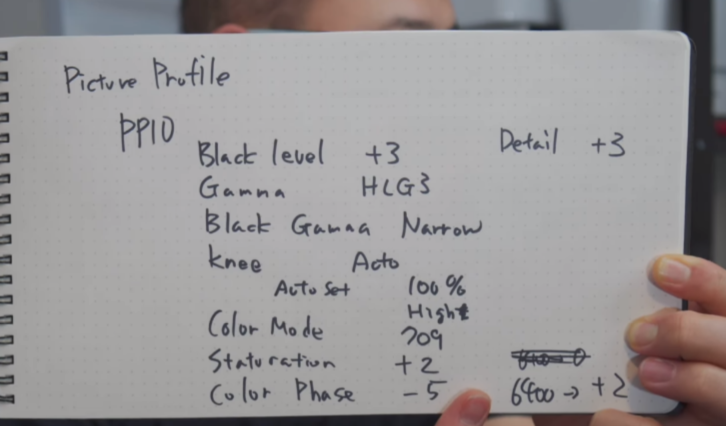 Picture Profile
PP10
Black level +3 Detail +3
Gamna HLG3
Black Gamna Narrow
knee Acto
Acto Set 100%
Hight
Color Mode 709
Staturation +2
Color Phase -5 6400→ +2